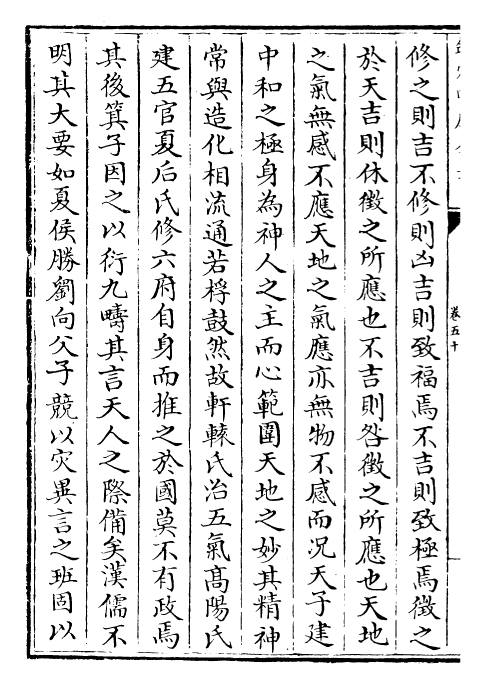 修之則吉不修則凶吉則致福焉不吉則致極焉徵之
於天吉則休徵之所應也不吉則咎徵之所應也天地
之氣無感不應天地之氣應亦無物不感而況天子建
中和之極身為神人之主而心範圍天地之妙其精神
常與造化相流通若桴鼓然故軒轅氏治五氣髙陽氏
建五官夏后氏修六府自身而推之於國莫不有政焉
其後箕子因之以衍九疇其言天人之際備矣漢儒不
明其大要如夏侯勝劉向父子競以灾異言之班固以
卷五十